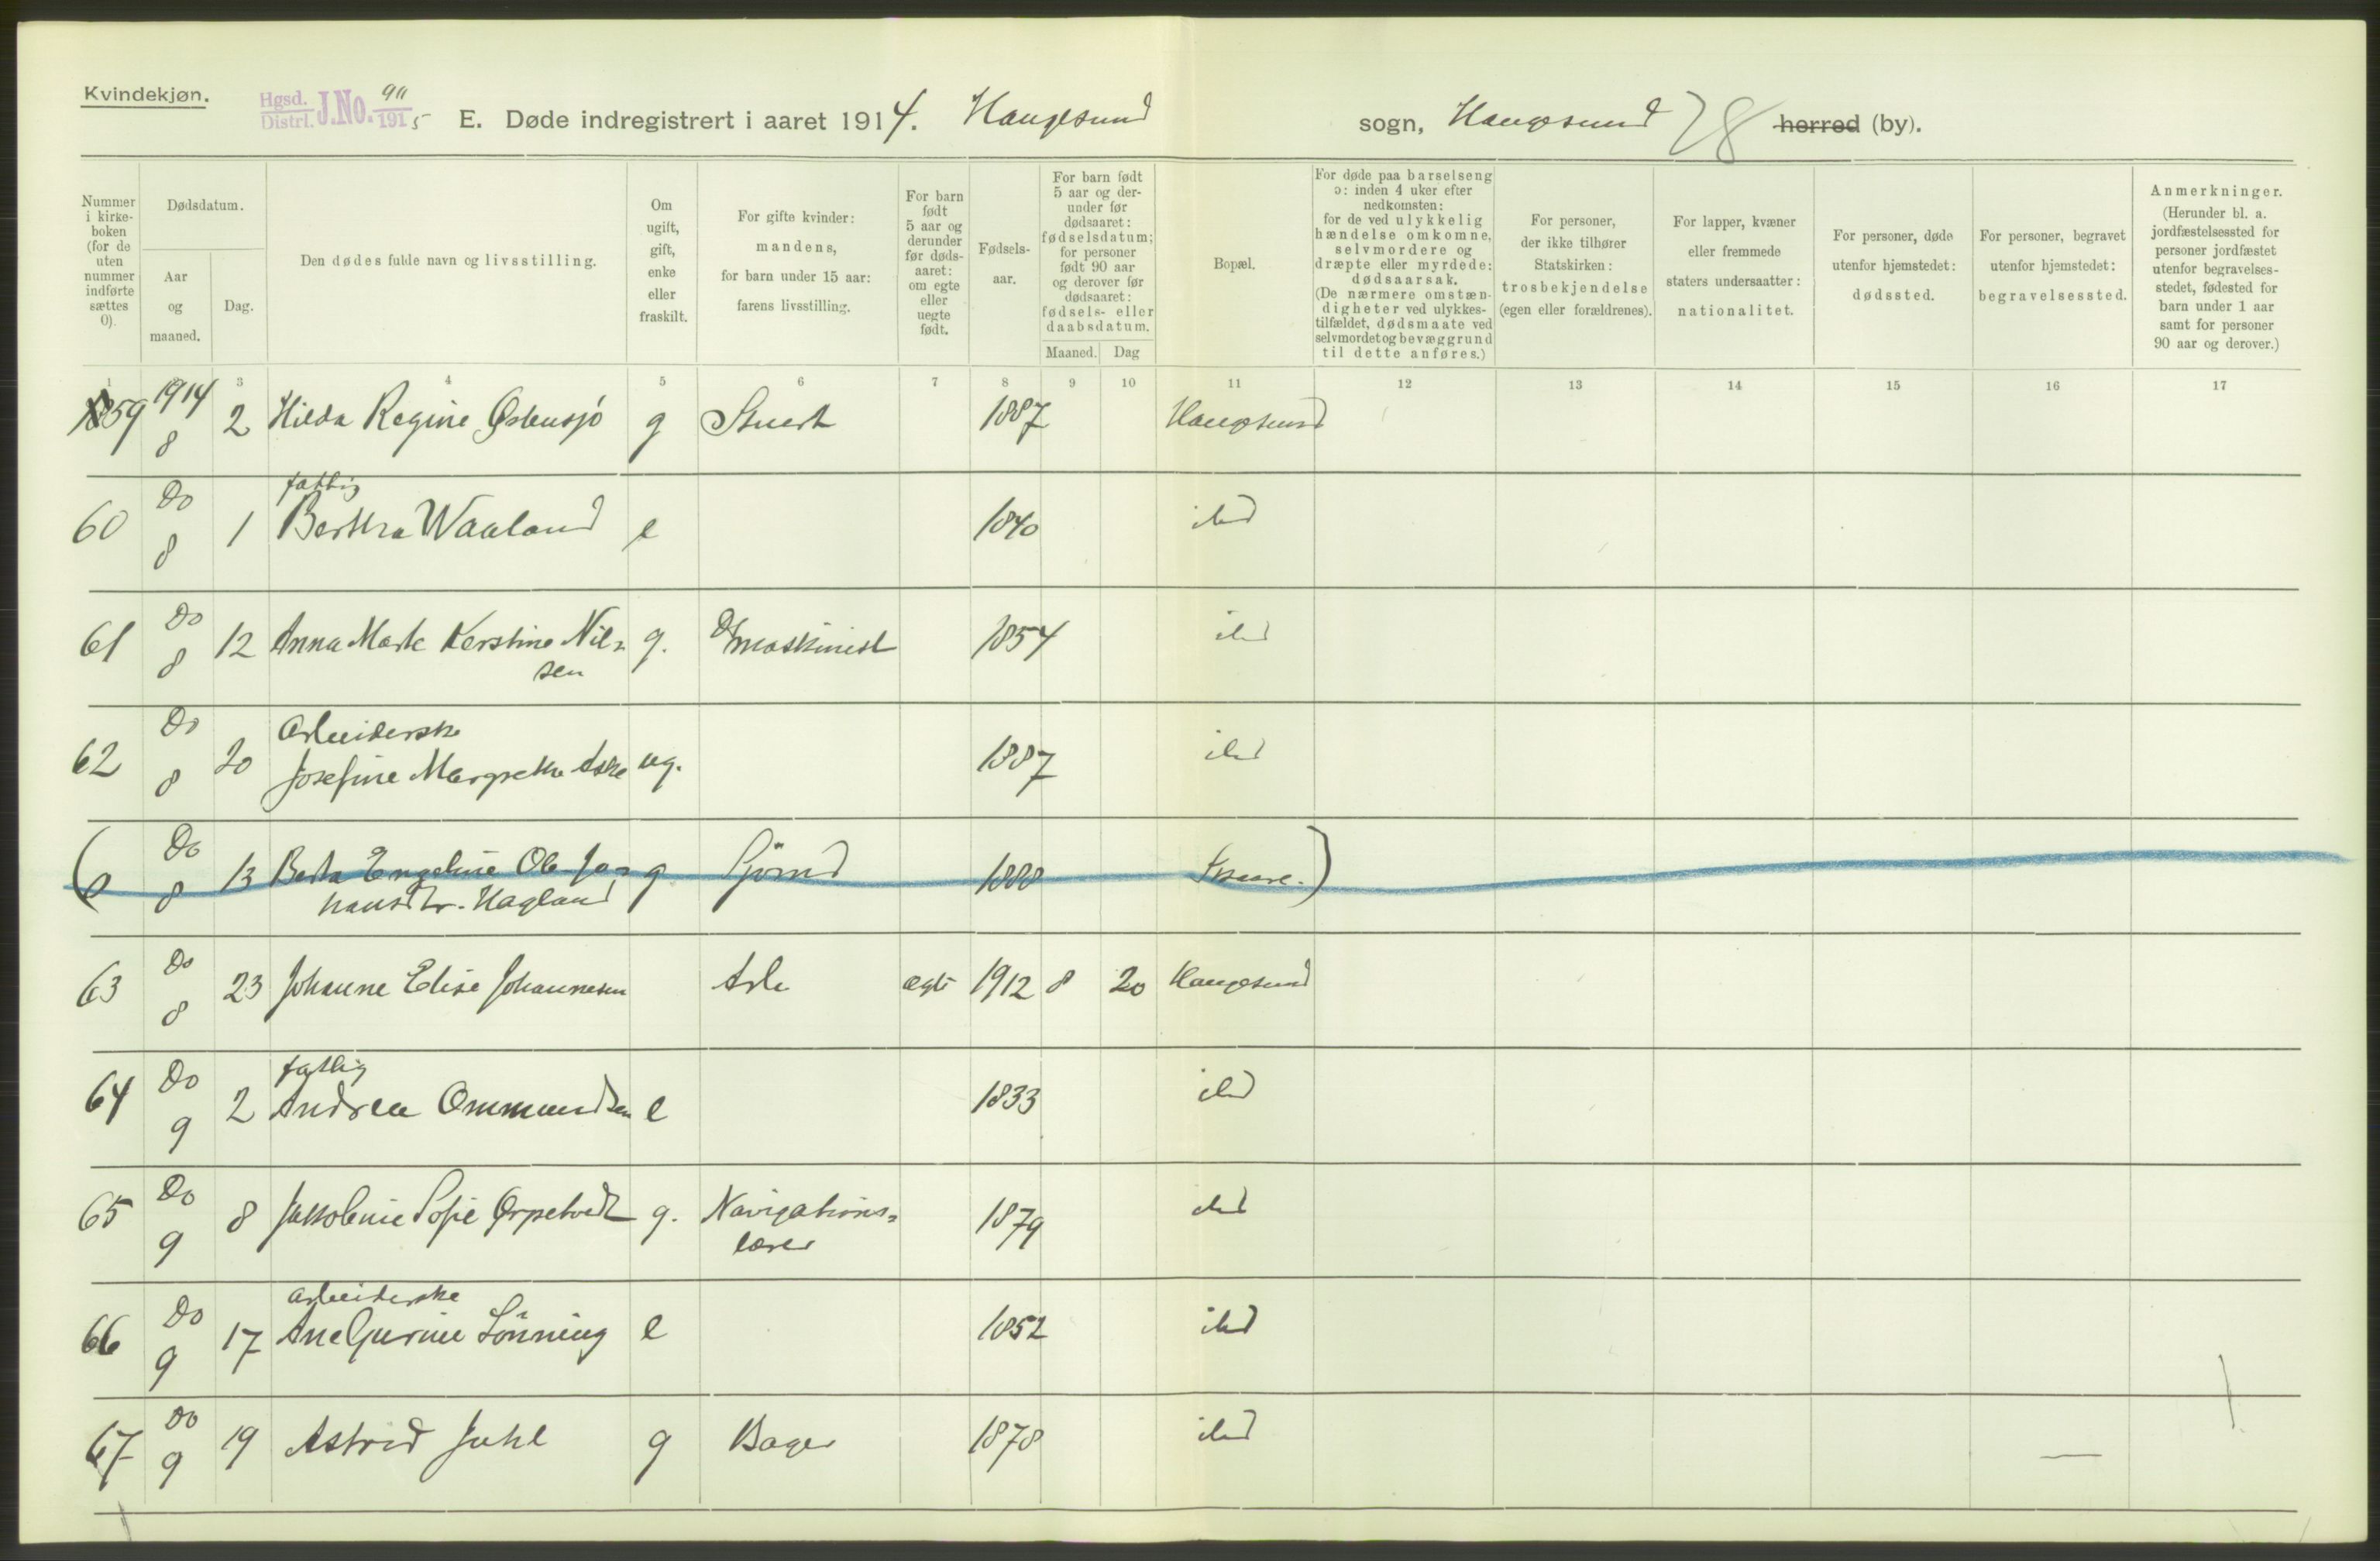 Kvindekjøn.
Hgsd. Distrl. J.No. 911/1915
E. Døde indregistrert i aaret 1914. Haugesund sogn, Haugesund 28 herred (by).
Nummer i kirke-boken (for de uten nummer indførte sættes 0).
Dødsdatum.
Aar og maaned.
Dag.
Den dødes fulde navn og livsstilling.
Om ugift, gift, enke eller fraskilt.
For gifte kvinder: mandens, for barn under 15 aar: farens livsstilling.
For barn født 5 aar og derunder før døds-aaret: om egte eller uegte født.
Fødsels-aar.
For barn født 5 aar og der-under før dødsaaret: fødselsdatum; for personer født 90 aar og derover før dødsaaret: fødsels- eller daabsdatum.
Maaned. Dag
Bopæl.
For døde paa barselseng ɔ: inden 4 uker efter nedkomsten: for de ved ulykkelig hændelse omkomne, selvmordere og dræpte eller myrdede: dødsaarsak. (De nærmere omstæn-digheter ved ulykkes-tilfældet, dødsmaate ved selvmordet og bevæggrund til dette anføres.)
For personer, der ikke tilhører Statskirken: trosbekjendelse (egen eller forældrenes).
For lapper, kvæner eller fremmede staters undersaatter: nationalitet.
For personer, døde utenfor hjemstedet: dødssted.
For personer, begravet utenfor hjemstedet: begravelsessted.
Anmerkninger. (Herunder bl. a. jordfæstelsessted for personer jordfæstet utenfor begravelses-stedet, fødested for barn under 1 aar samt for personer 90 aar og derover.)
1 2 3 4 5 6 7 8 9 10 11 12 13 14 15 16 17
59 1914 8 2 Hilda Regine Østensjö g Stuert 1887 Haugesund
fattig
60 Do 8 1 Bertha Waaland e 1840 ibd
61 Do 8 12 Anna Marte Kerstine Nil= g. maskinist 1854 ibd
sen
Arbeiderske
62 Do 8 20 Josefine Margrethe Aske ug. 1887 ibd
(0 Do 8 13 Berta Engeline Ole Jo= g Sjömd 1888 Skaare.)
hansdtr. Hagland
63 Do 8 23 Johanne Elise Johannesen Arb ægte 1912 8 20 Haugesund
fattig
64 Do 9 2 Andrea Ommundsen e 1833 ibd
65 Do 9 8 Jakobine Sofie Ørpetvedt g. Navigations= 1879 ibd
lærer
arbeiderske
66 Do 9 17 Ane Gurine Lönning e 1852 ibd
67 Do 9 19 Astrid Juhl g Bager 1878 ibd